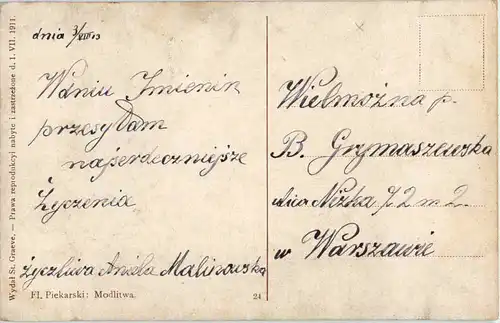 dnia 3/VIII 13
W dniu Imienin
przesyłam
najserdeczniejsze
Życzenia
życzliwa Aniela Malinowska
Fl. Piekarski: Modlitwa.
24
Wydał St. Graeve. — Prawa reprodukcyi nabyte i zastrzeżone d. 1. VII. 1911.
Wielmożna p.
B. Grymaszewska
ulica Nizka 72 m 2.
w Warszawie